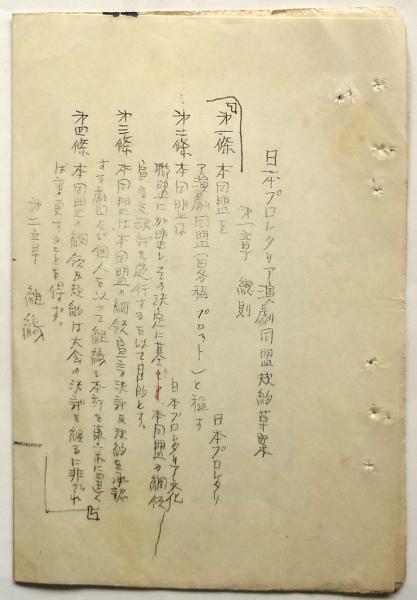 日本プロレタリア演劇同盟規約草案
第一章 總則
第一條 本同盟を 日本プロレタリ
ア演劇同盟(略稱プロット)と稱す
第二條 本同盟は 日本プロレタリア文化
聯盟に加盟しその決定に基き 本同盟の綱領
宣言及決議を遂行するを以て目的とす。
第三條 本同盟は本同盟の綱領宣言決議及規約を承認
する劇団及び個人を以つて組織し本部を東京に置く
第四條 本同盟の綱領及規約は大会の決議を經るに非ざれ
ば変更することを得ず。
第二章 組織